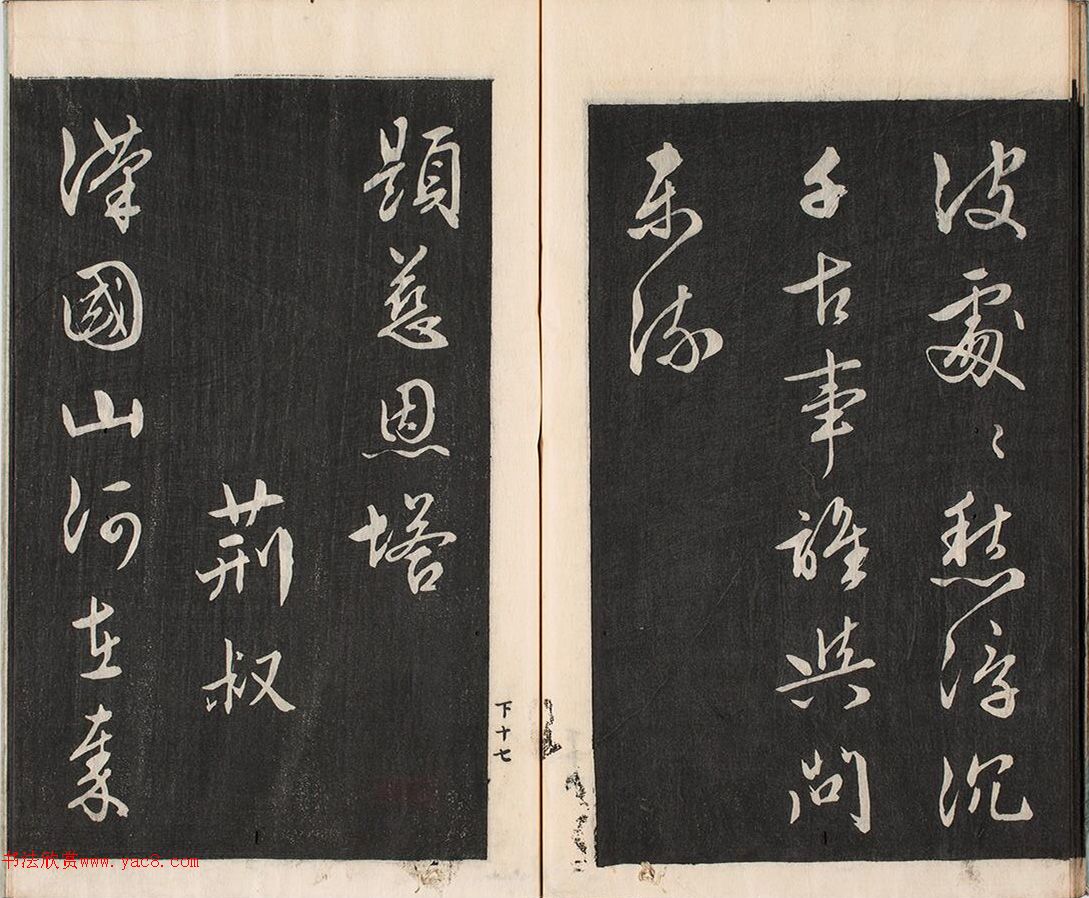 波處〻愁浮沉
千古事誰與問
東流
下十七
題慈恩塔
荊叔
漢國山河在秦
书法欣赏www.yac8.com